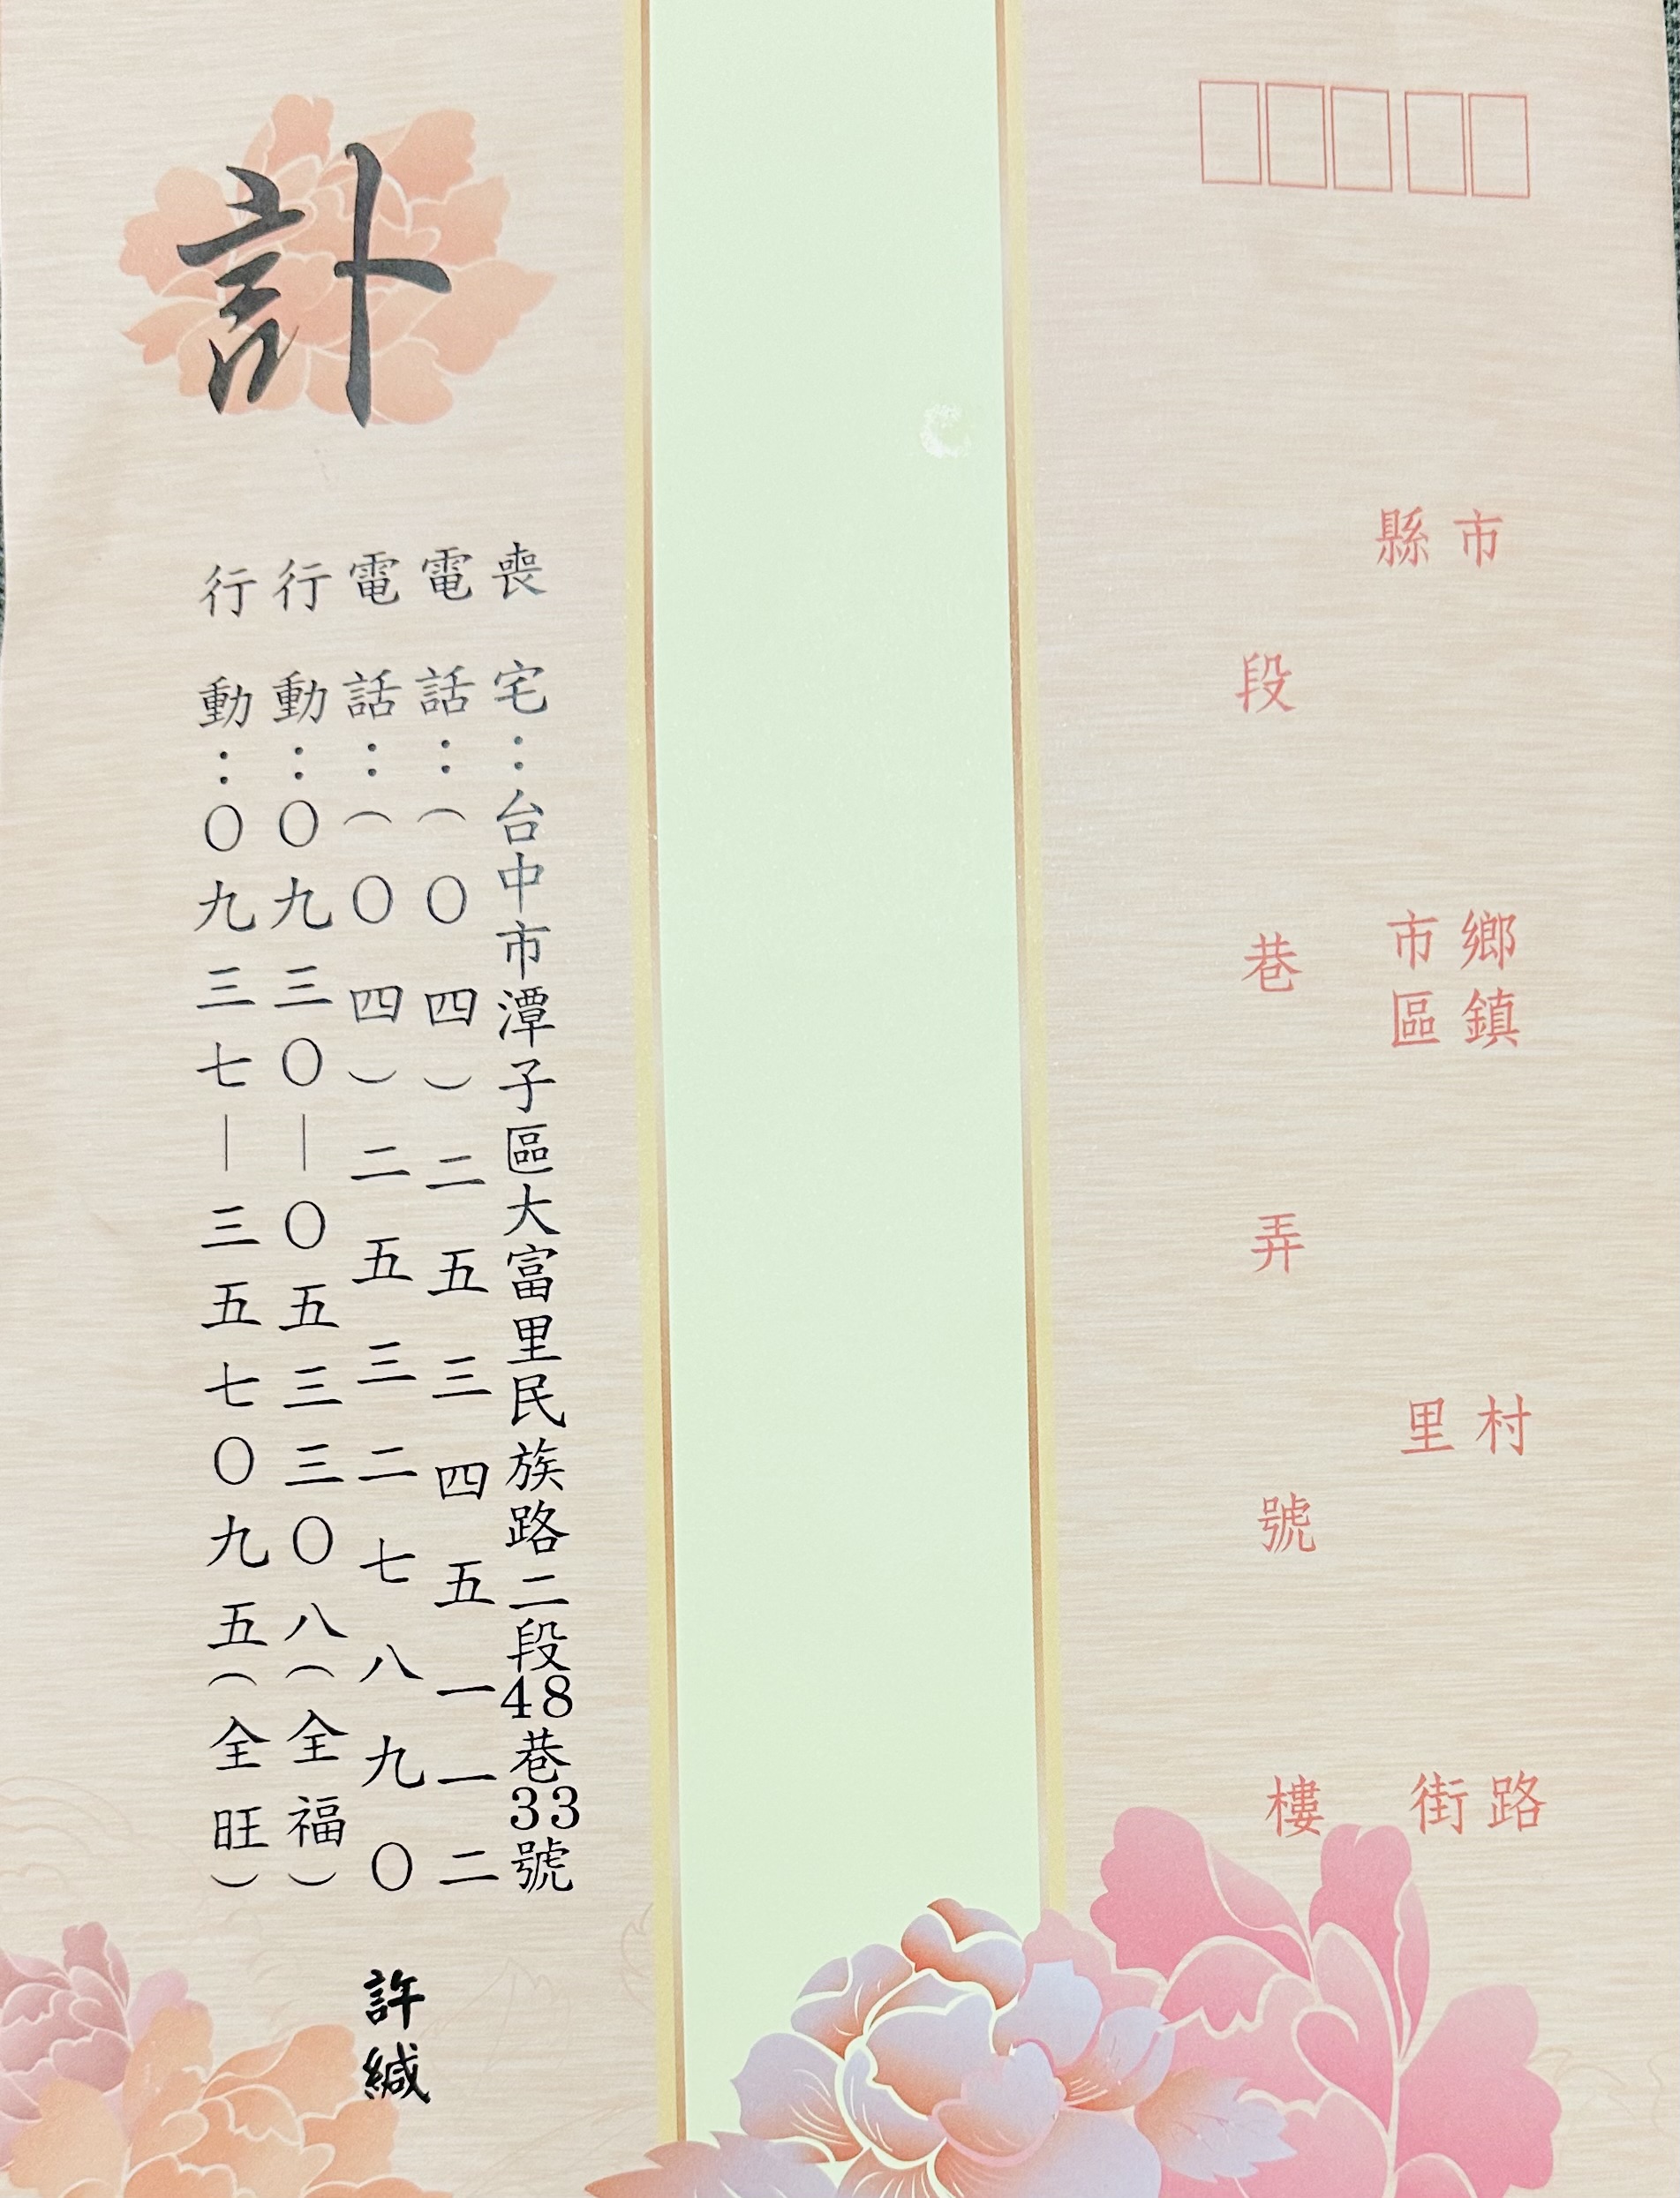 縣市
鄉鎮
市區
里村
街路
段
巷
弄
號
樓
訃
喪宅：台中市潭子區大富里民族路二段48巷33號
電話：（〇四）二五三四五一一二
電話：（〇四）二五三二七八九〇
行動：〇九三〇—〇五三三〇八（全福）
行動：〇九三七—三五七〇九五（全旺）
許緘